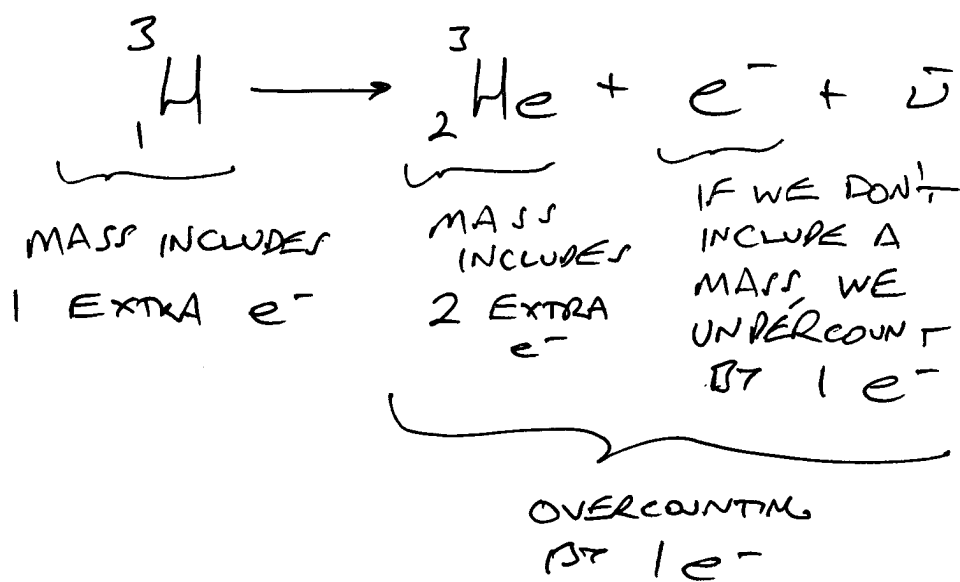 ³₁H → ³₂He + e⁻ + ν̄
MASS INCLUDES
1 EXTRA e⁻
MASS
INCLUDES
2 EXTRA
e⁻
IF WE DON'T
INCLUDE A
MASS, WE
UNDERCOUNT
BY 1 e⁻
OVERCOUNTING
BY 1 e⁻